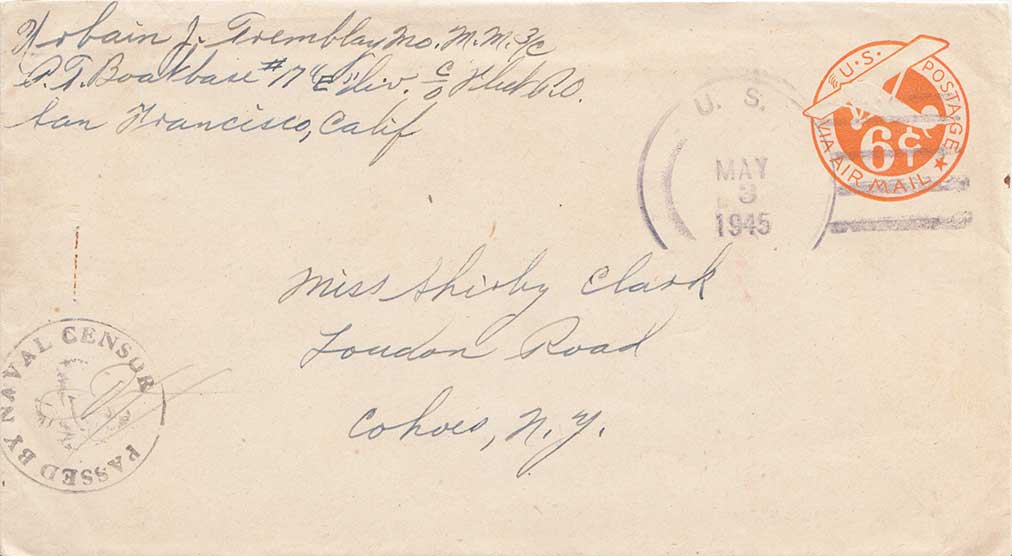 Urbain J. Tremblay Mo. M.M. 3/c
P.T. Boatbase #17 "E" Div. c/o Fleet P.O.
San Francisco, Calif
U.S. POSTAGE
6¢
VIA AIR MAIL
U. S.
MAY
3
1945
Miss Shirly Clark
Loudon Road
Cohoes, N.Y.
PASSED BY NAVAL CENSOR